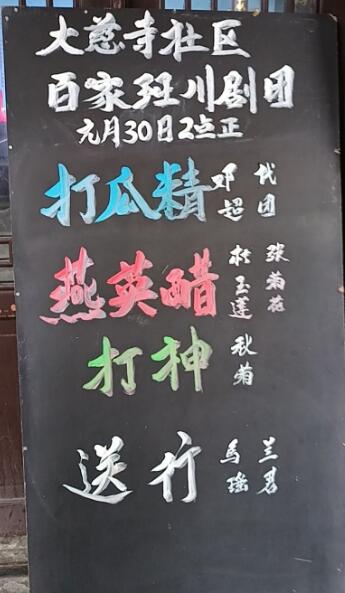 大慈寺社区
百家班川剧团
元月30日2点正
打瓜精 邓超 代团
燕英醋 杜玉莲 张菊花
打神 秋菊
送行 马瑶 兰君